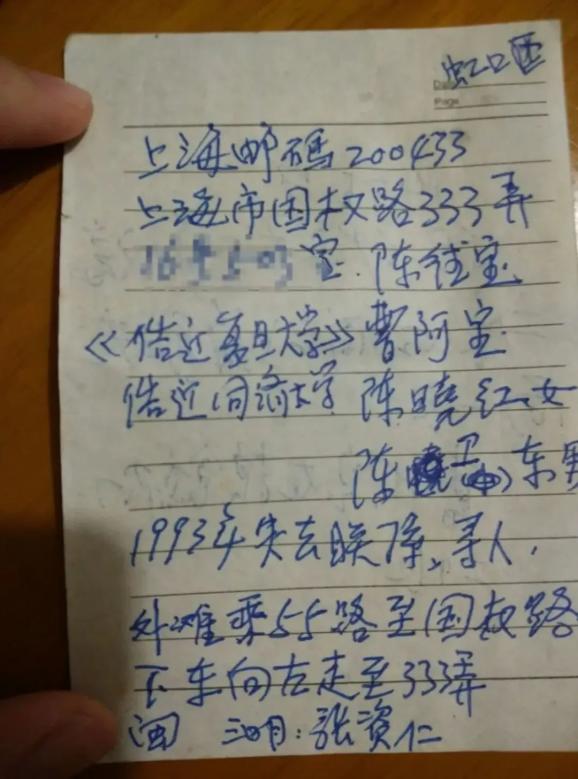 虹口区
Date
Page
上海邮码200433
上海市国权路333弄
室. 陈钱宝
《借近复旦大学》曹阿宝
借近同济大学 陈晓红女
陈 卫 东男
1993年失去联系,寻人,
外滩乘55路至国权路
下车向左走至333弄
闽 三明:张资仁